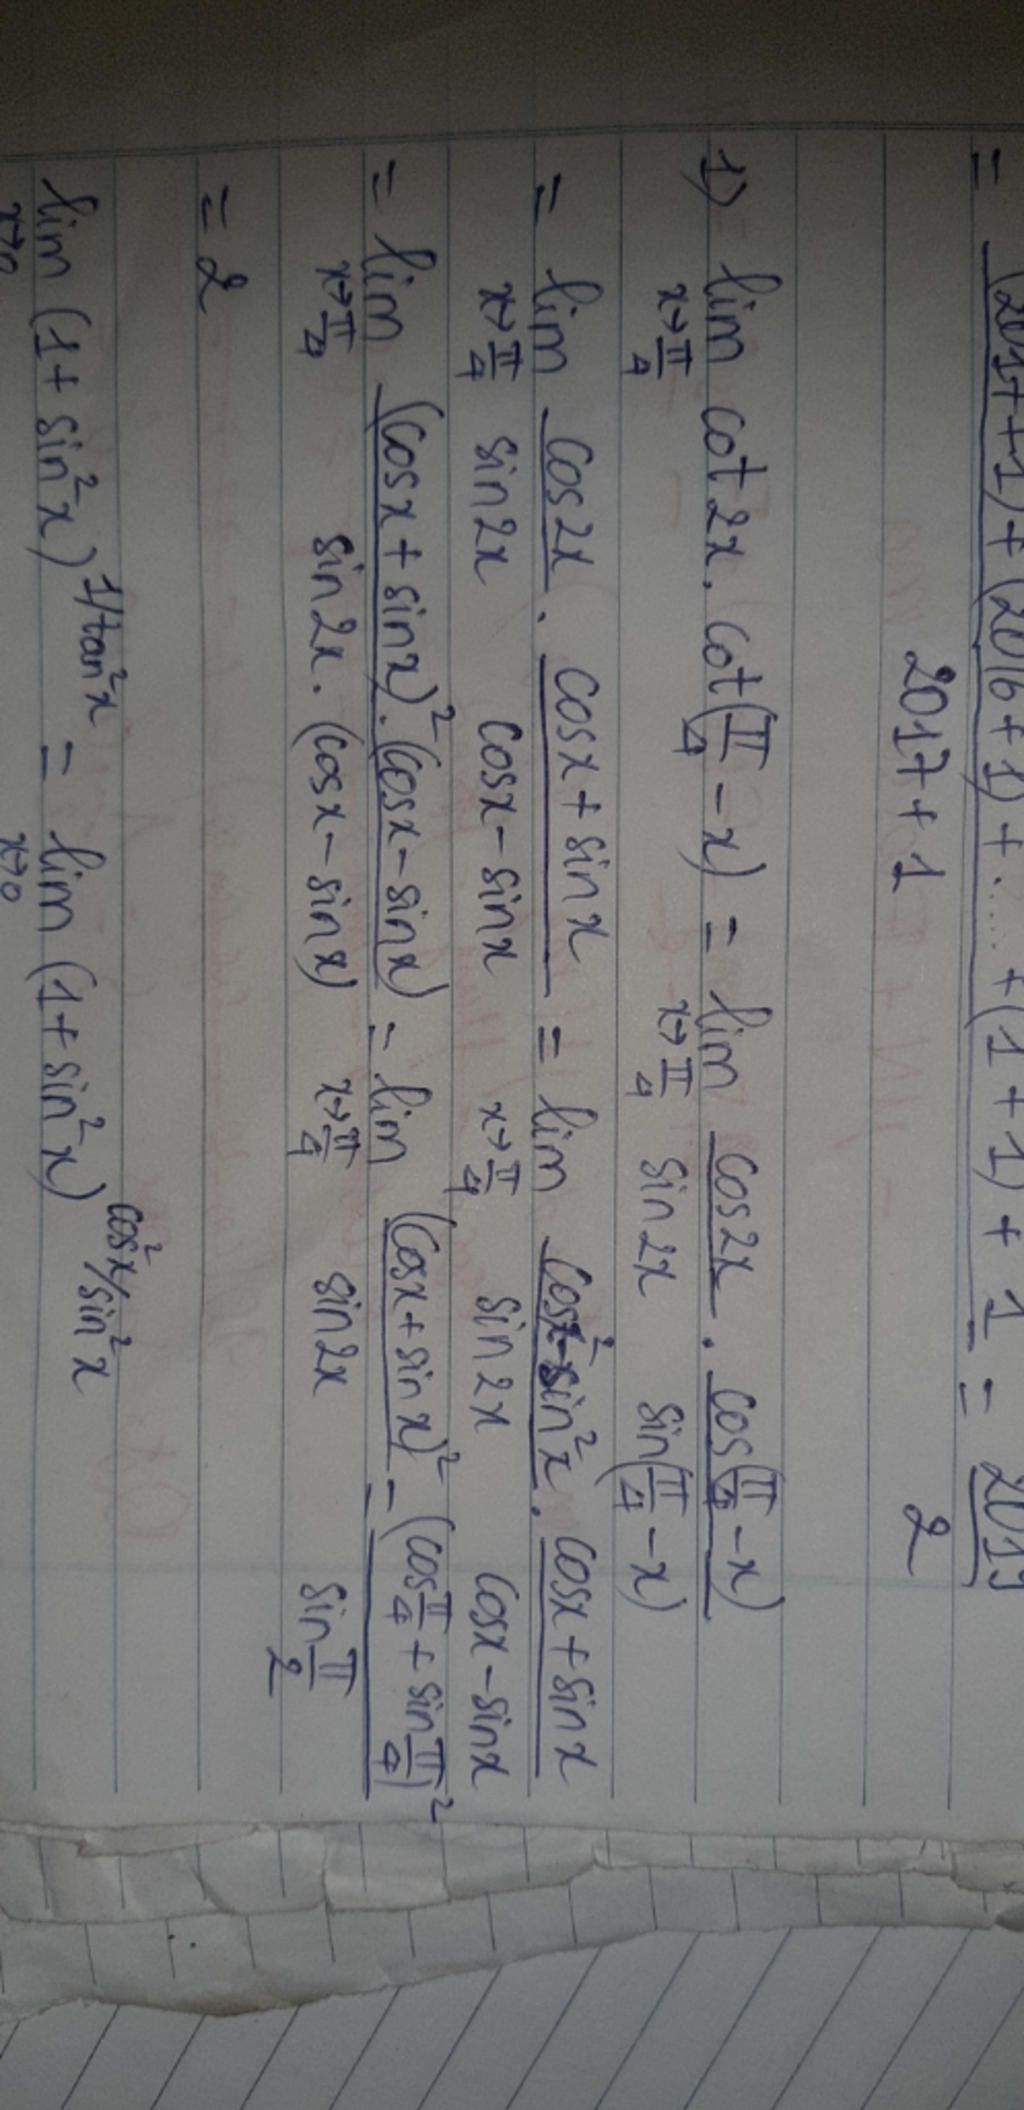 = (2017+1)+(2016+1)+.....+(1+1)+1 / 2017+1 = 2019/2
1) lim x→π/4 cot2x. cot(π/4 -x) = lim x→π/4 cos2x/sin2x . cos(π/4 -x)/sin(π/4 -x)
= lim x→π/4 cos2x/sin2x . cosx+sinx/cosx-sinx = lim x→π/4 cos²x-sin²x/sin2x . cosx+sinx/cosx-sinx
= lim x→π/4 (cosx+sinx)².(cosx-sinx)/sin2x.(cosx-sinx) = lim x→π/4 (cosx+sinx)²/sin2x = (cosπ/4+sinπ/4)²/sinπ/2
= 2
lim x→0 (1+sin²x)^1/tan²x = lim x→0 (1+sin²x)^cos²x/sin²x